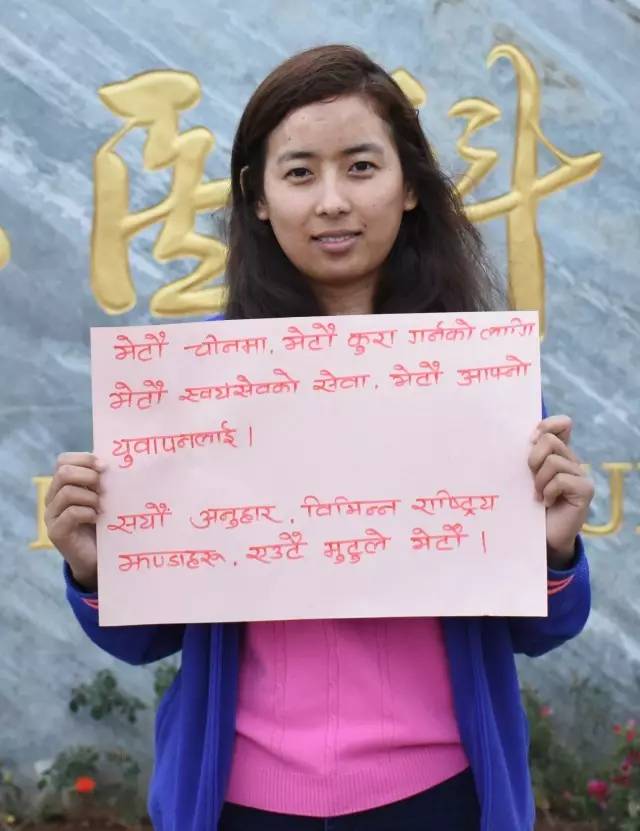 医科
भेटौं चीनमा, भेटौं कुरा गर्नको लागि
भेटौं स्वयंसेवको सेवा, भेटौं आफ्नो
युवापनलाई।
सयौं अनुहार, विभिन्न राष्ट्रिय
झण्डाहरू, एउटै मुटुले भेटौं।